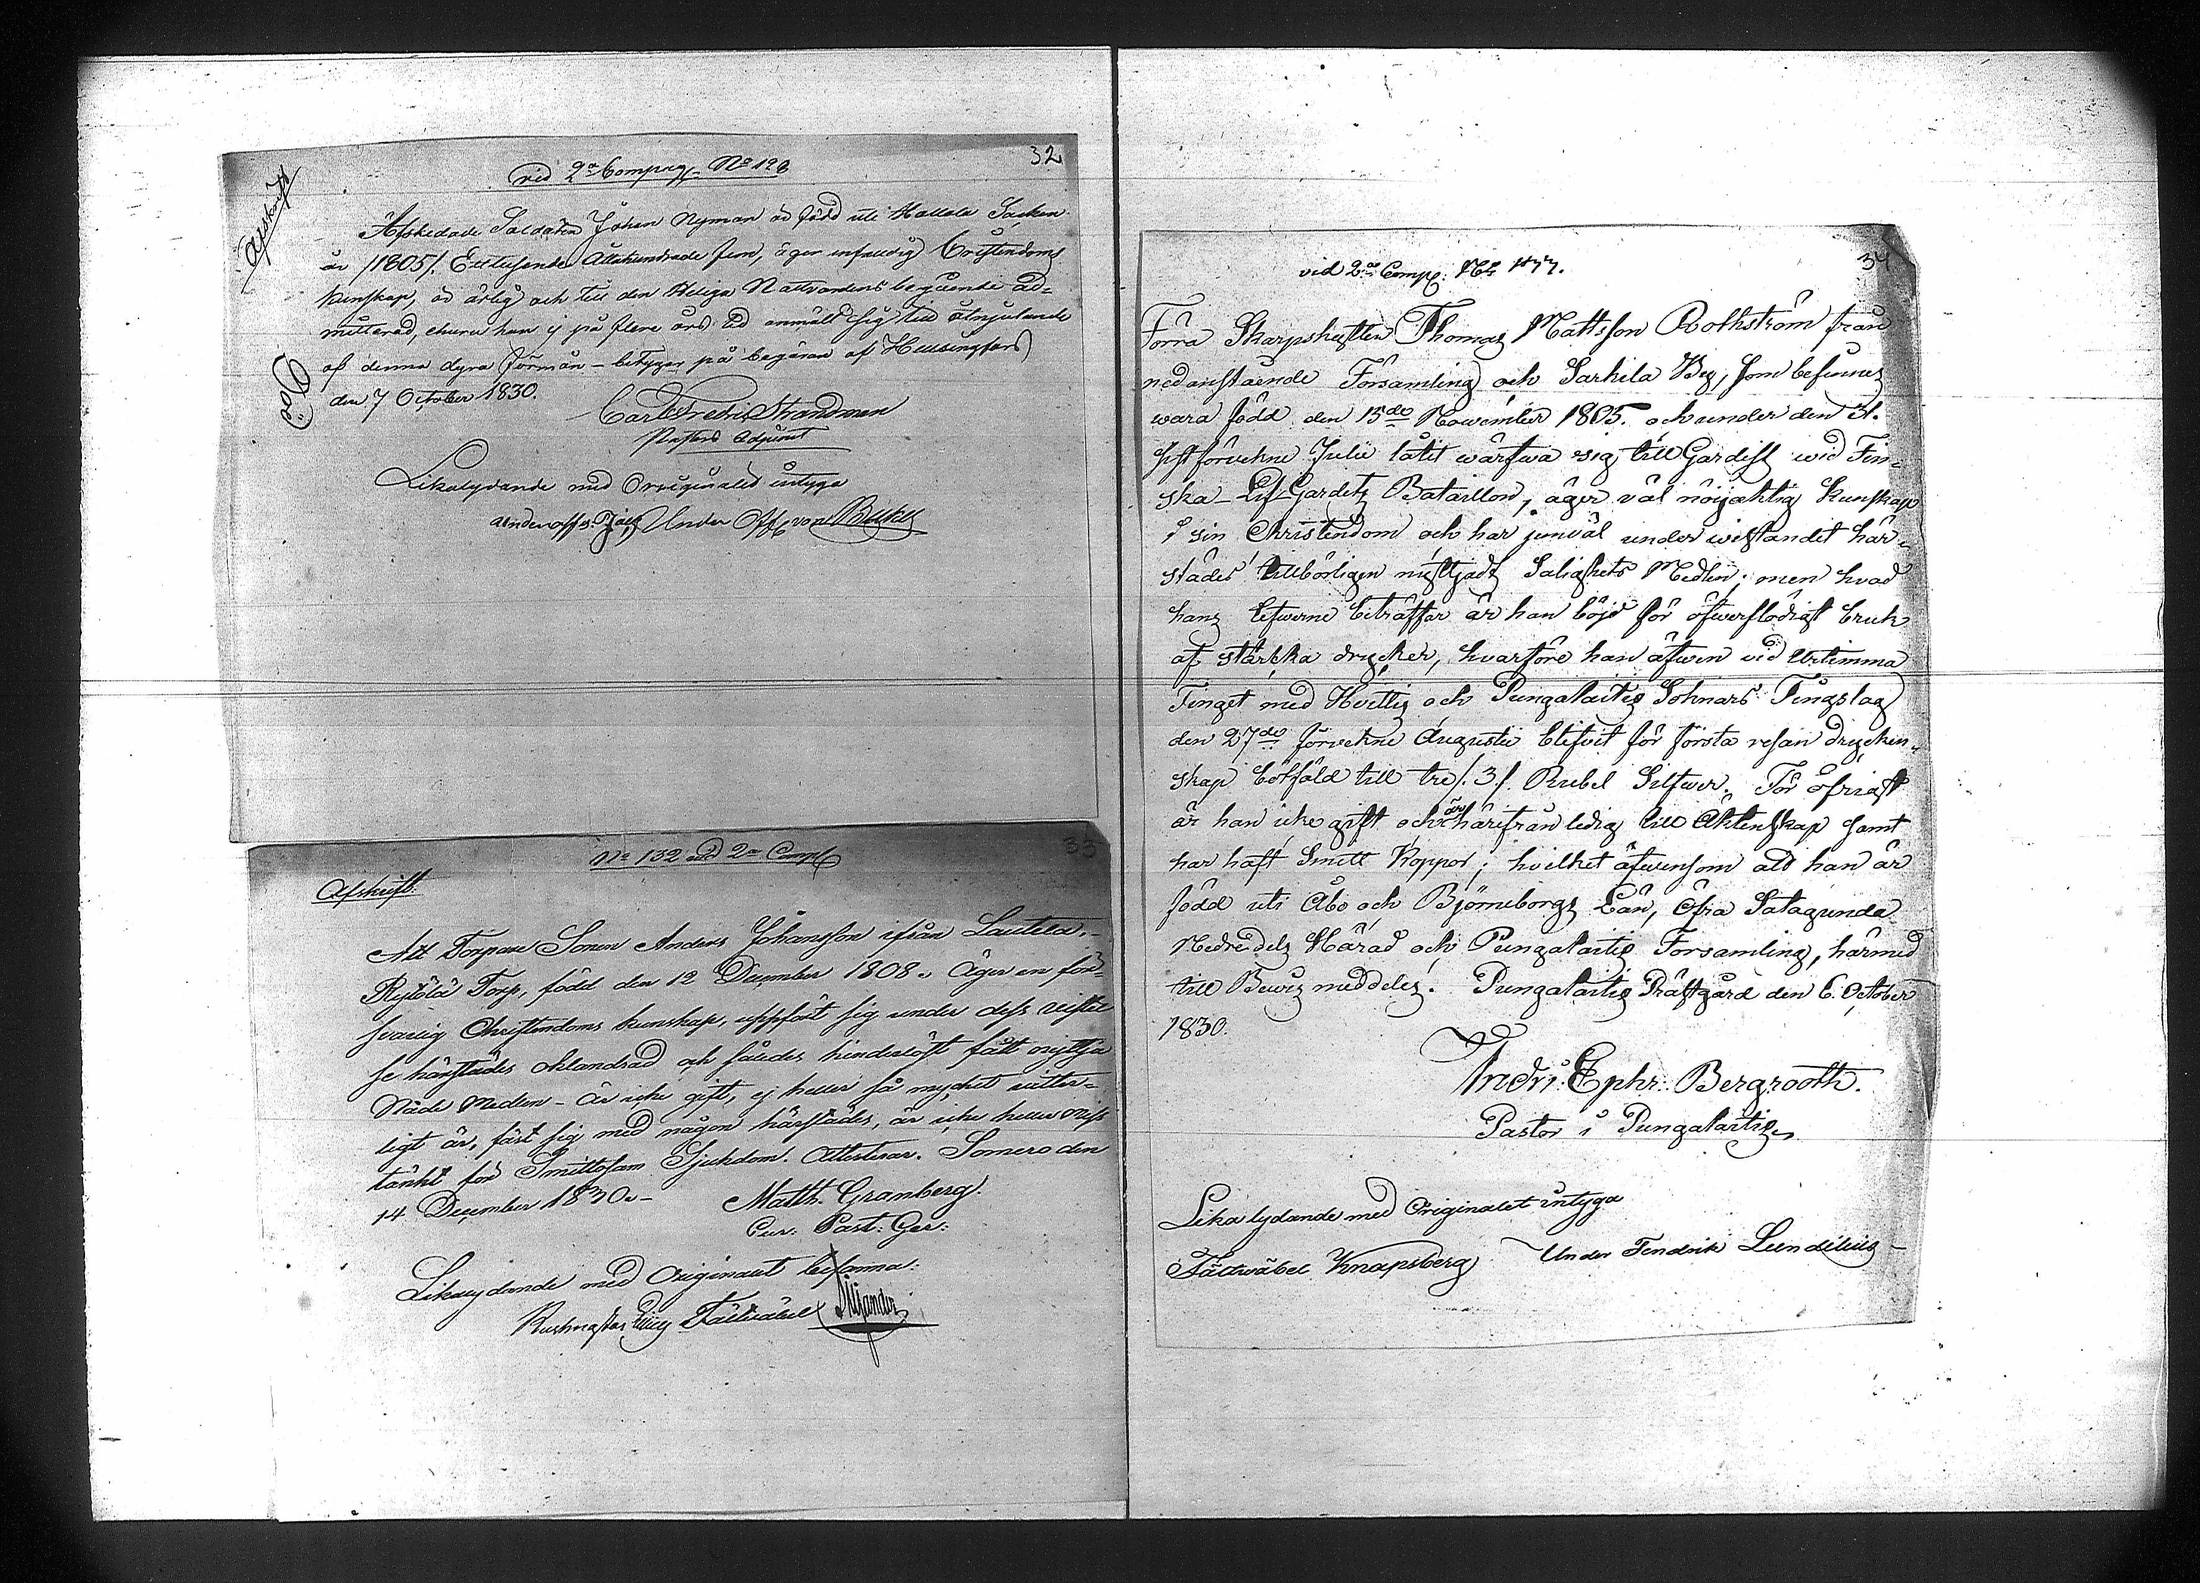 32
vid 2a Compag. No 128
Afskrift
Afskedade Soldaten Johan Nyman är född uti Hattula Socken
år /1805/. Ettusende Ottahundrade fem, äger enfaldig Cristendoms
kunskap, är ärlig och till den Heliga Nattvardens begående ad-
mitterad, churu han ej på flere års tid anmält sig till åtnjutande
af denna dyra förmån – betygas på begäran af Helsingfors
den 7 October 1830.
Carl Fredric Strandman
Pastors Adjunct
Likalydande med Originalet intyga
Under Off. von
33
No 132 vid 2a Comp.
Afskrift.
Att Torpare Sonen Anders Johansson ifrån Lautela,
Torp, född den 12 December 1808. Äger en för-
svarlig Christendoms kunskap, uppfört sig under dess vistel
se härstädes oklandrad och således hinderlöst fått nyttja
Nåde Medlen – är icke gift, ej heller så mycket vitter-
ligt är, fäst sig med någon härstädes, är icke heller miss
tänkt för Smittosam Sjukdom. Attesterar. Somero den
14 December 1830. –
Matth. Granberg.
Cur: Past: Ger:
Likalydande med Originalet befanna:
Fältväbel
34
vid 2a Comp. No 177.
Förra Skarpskytten Thomas Mattsson Rothström från
nedanstående Församling och Sarkila By, som befinnes
wara född den 15de November 1805. och under den 31.
sistförvekne Julii låtit wärfwa sig till Gardist wid Fin-
ska Lif-Gardets Bataillon, äger väl nöijaktig Kunskap
i sin Christendom och har jemväl under wistandet här-
städes tillbörligen nyttjadt Salighets Medlen; men hvad
hans Lefwerne beträffar är han böjd för öfwerflödigt bruk
af starkka drycker, hvarföre han äfwen vid Urtimma
Tinget med Hvittis och Pungalaitis Soknars Tingslag
den 27de förvekne Augustii blifvit för första resan drycken-
skap bötfäld till tre /:3:/ Rubel Silfwer. För öfrigt
är han icke gift och är härifrån ledig till Äktenskap samt
har haft Smitt Koppor; hvilket äfwensom att han är
född uti Åbo och Björneborgs Län, Öfra Satagunda
Nedredels Härad och Pungalaitis Forsamling, härmed
till Bewis meddeles. Pungalaitis Prästgård den 6. October
1830.
Andr: Ephr: Bergrooth.
Pastor i Pungalaitis
Lika lydande med Originalet intyga
Fältwäbel Knapsberg Under Fendrik Lundelius